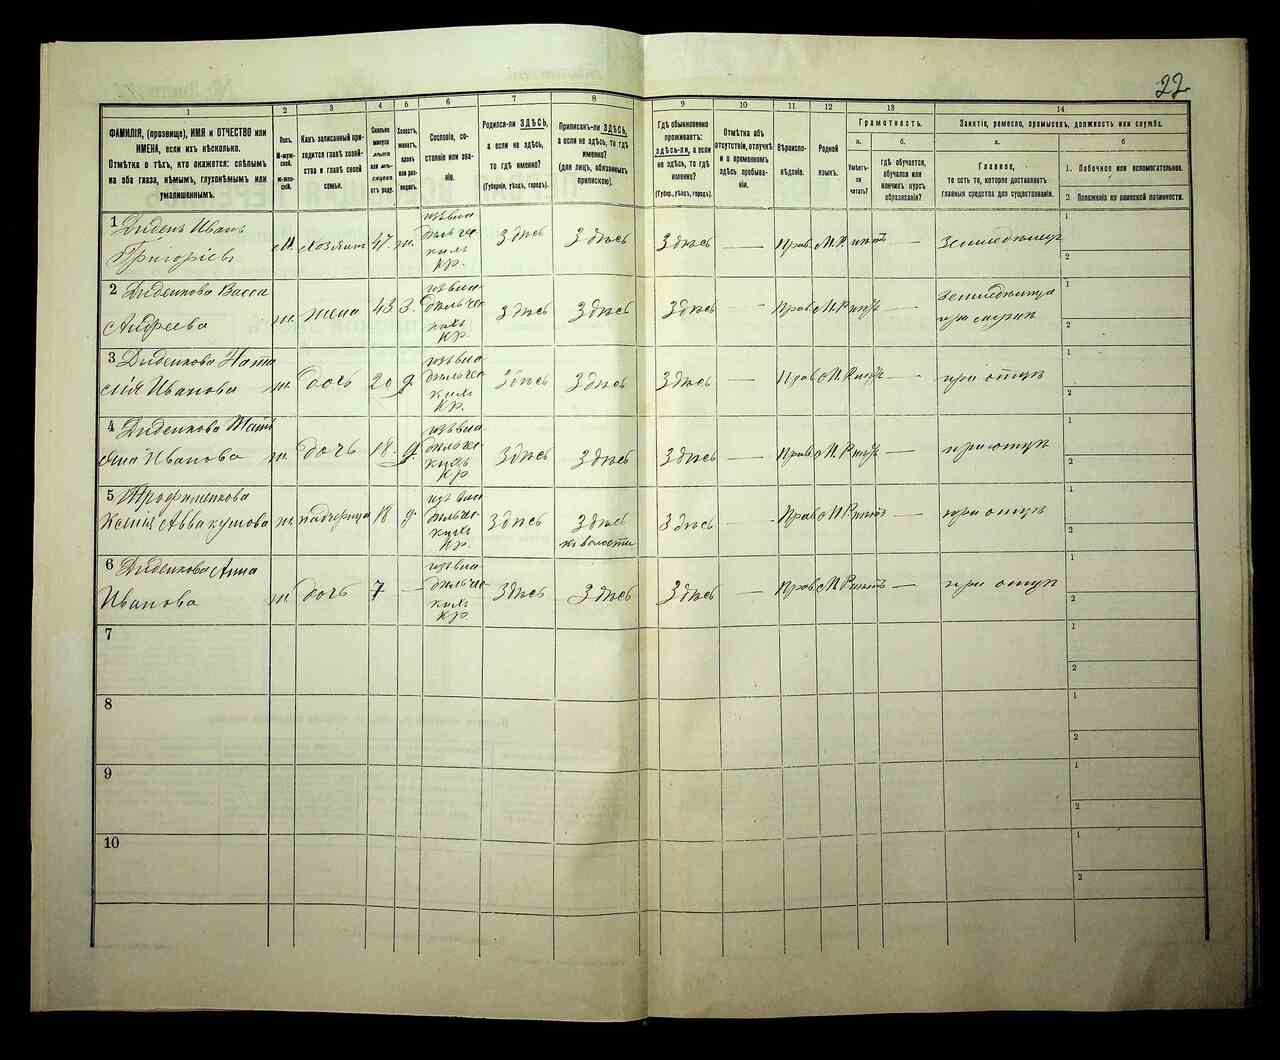 22
1
2
3
4
5
6
7
8
9
10
11
12
13
14
ФАМИЛІЯ, (прозвище), ИМЯ и ОТЧЕСТВО или
ИМЕНА, если ихъ нѣсколько.
Отмѣтка о тѣхъ, кто окажется: слѣпымъ
на оба глаза, нѣмымъ, глухонѣмымъ или
умалишеннымъ.
Полъ.
М-мужской.
Ж-женскій.
Какъ записанный приходится главѣ хозяйства и главѣ своей семьи.
Сколько минуло лѣтъ или мѣсяцевъ отъ роду.
Холостъ, женатъ, вдовъ или разведенъ.
Сословіе, состояніе или званіе.
Родился-ли ЗДѢСЬ,
а если не здѣсь,
то гдѣ именно?
(Губернія, уѣздъ, городъ).
Приписанъ-ли ЗДѢСЬ,
а если не здѣсь, то гдѣ
именно?
(для лицъ, обязанныхъ
припискою).
Гдѣ обыкновенно
проживаетъ:
здѣсь-ли, а если
не здѣсь, то гдѣ
именно?
(Губер., уѣздъ, городъ).
Отмѣтка объ
отсутствіи, отлучкѣ
и о временномъ
здѣсь пребываніи.
Вѣроисповѣданіе.
Родной
языкъ.
Грамотность.
а.
б.
Умѣетъ-ли читать?
гдѣ обучается,
обучался или
кончилъ курсъ
образованія?
Занятіе, ремесло, промыселъ, должность или служба.
а.
б
Главное,
то есть то, которое доставляетъ
главныя средства для существованія.
1. Побочное или вспомогательное.
2. Положеніе по воинской повинности.
1 Диденъ Иванъ
Григоріевъ
М. Хозяинъ 47 ж. изъ влад
ѣльче
кихъ
Кр. Здѣсь Здѣсь Здѣсь — Прав М.Р. нѣтъ — Земледѣлецъ 1
2
2 Диденкова Васса
Андреева
ж. жена 43 З. Кр. Здѣсь Здѣсь Здѣсь — Прав М.Р нѣтъ — Земледѣлица
при мужѣ 1
2
3 Диденкова Ната
лія Иванова
ж. дочь 20 д. Кр. Здѣсь Здѣсь Здѣсь — Прав М.Р нѣтъ — при отцѣ 1
2
4 Диденкова
Иванова
ж. дочь 18. д. Кр Здѣсь Здѣсь Здѣсь — Прав М.Р нѣтъ — при отцѣ 1
2
5 Трофименкова
Ксенія Аввакумова
ж. падчерица 18 д. Кр. Здѣсь Здѣсь
къ волости Здѣсь — Прав М.Р нѣтъ — при отцѣ 1
2
6 Диденкова Анна
Иванова
ж. дочь 7 — Кр. Здѣсь Здѣсь Здѣсь — Прав М.Р нѣтъ — при отцѣ 1
2
7 1
2
8 1
2
9 1
2
10 1
2